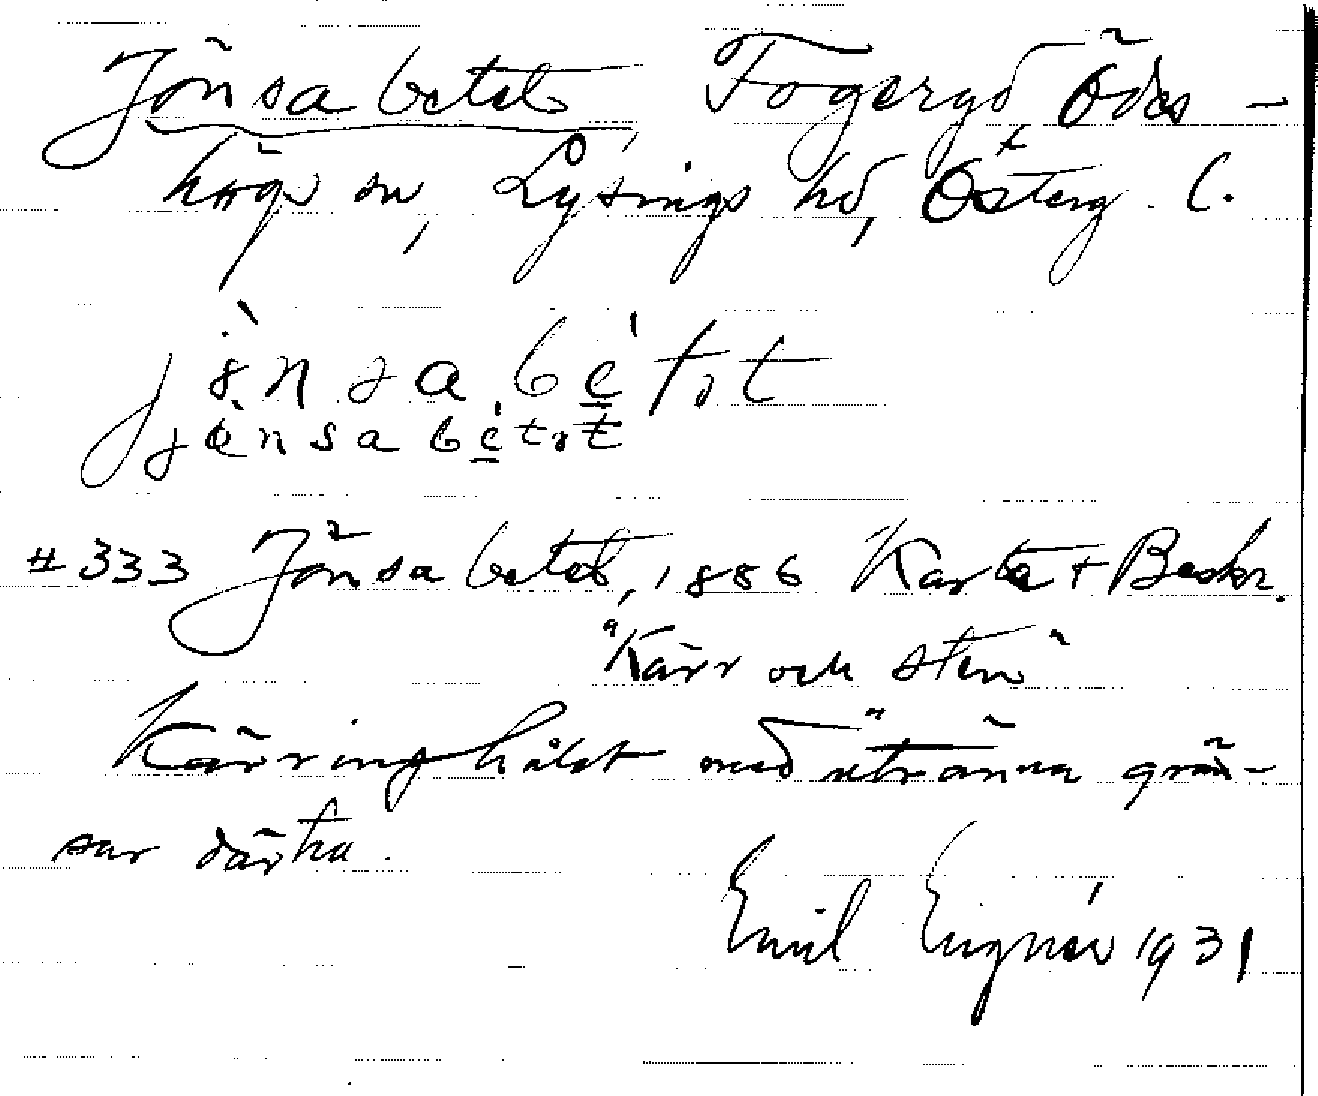 Jönsabetet Fogeryd, Ödes-
högs sn, Lysings hd, Österg. l.
jönsabétət
jönsabétət
#333 Jönsabetet, 1886 Karta + Beskr.
"Kärr och sten"
Kärringhålet med utränna grän-
sar därtia.
Emil Eignér 1931